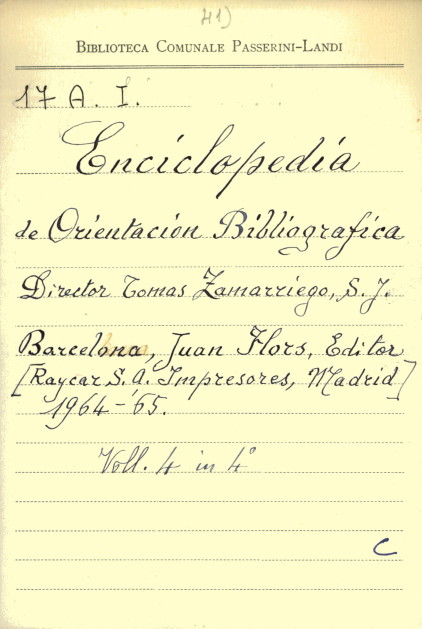 41)
BIBLIOTECA COMUNALE PASSERINI-LANDI
17 A. I.
Enciclopedía
de Orientación Bibliografica
Director Tomas Zamarriego, S. J.
Barcelona, Juan Flors, Editor
[Raycar S. A. Impresores, Madrid]
1964-65.
Voll. 4 in 4°
C